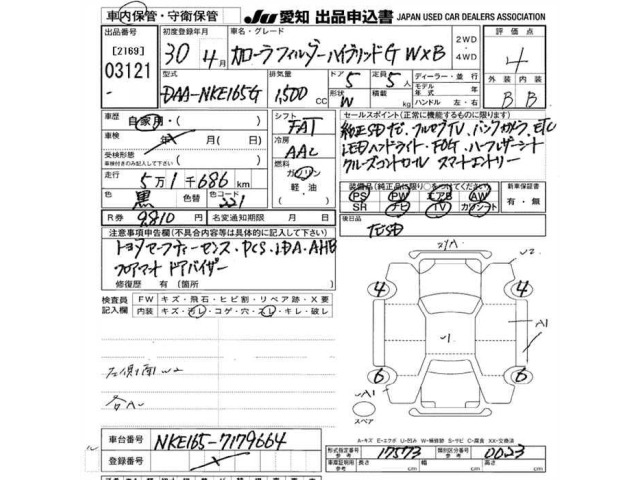 車内保管・守衛保管
JU 愛知 出品申込書 JAPAN USED CAR DEALERS ASSOCIATION
出品番号
[2169]
03121
初度登録年月
30年 4月
車名・グレード
カローラフィルダーハイブリッドG W×B
2WD
・
4WD
評価点
4
型式
DAA-NKE165G
排気量
1,500 CC
ドア
5
形状
W
定員
5人
積載
kg
ディーラー・並行
モデル年式 年
ハンドル 左・右
外装 内装
B B
車歴 自家用・( )
車検 年 月
受検形態
車検付きのみ記入して下さい
( )
走行
5万1千686km
色 黒
色替
色コード 221
R券 9,810円
名変通知期限 月 日
シフト
FAT
冷房
AAC
燃料
ガソリン
軽・油
( )
セールスポイント(正常に機能するものに限ります)
純正SDナビ、フルセグTV、バックカメラ、ETC
LEDヘッドライト・FOG、ハーフレザーシート
クルーズコントロール スマートエントリー
装備品(純正品に限り○をつけてください)
PS PW エアB AW
SR ナビ TV カワシート
新車保証書
有・無
後日品
注意事項申告欄(不具合内容等は具体的に記入して下さい)
トヨタセーフティーセンス・PCS・LDA・AHB
フロアマット ドアバイザー
修復歴 有 [箇所 ]
検査員記入欄
FW キズ・飛石・ヒビ割・リペア跡・X要
内装 キズ・汚レ・コゲ・穴・スレ・キレ・破レ
左側面W2
各A
W2
4 4
A1
U1
6 6
A1
スペア
A-キズ E-エクボ U-凹み W-補修跡 S-サビ C-腐食 XX-交換済
車台番号 NKE165-7179664
登録番号
形式指定番号 参考 17573
類別区分番号 参考 0023
車庫証明用 参考 長さ cm 幅 cm 高さ cm